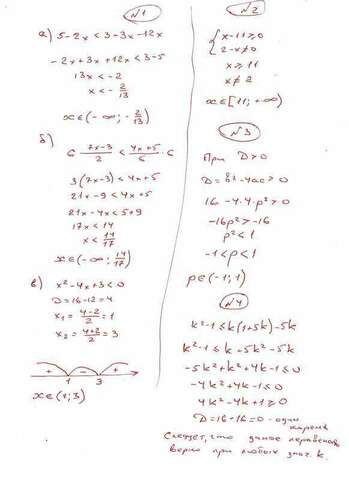 №1
а) 5-2x<3-3x-12x
-2x+3x+12x<3-5
13x<-2
x<-2/13
x∈(-∞;-2/13)
б) 6· (7x-3)/2 < (4x+5)/6 ·6
3(7x-3)<4x+5
21x-9<4x+5
21x-4x<5+9
17x<14
x<14/17
x∈(-∞;14/17)
в) x²-4x+3<0
D=16-12=4
x₁=(4-2)/2=1
x₂=(4+2)/2=3
+ - +
1 3
x∈(1;3)
№2
{x-11≥0
2-x≠0
x≥11
x≠2
x∈[11;+∞)
№3
При D>0
D=b²-4ac>0
16-4·4·p²>0
-16p²>-16
p²<1
-1<p<1
p∈(-1;1)
№4
k²-1≤k(1+5k)-5k
k²-1≤k-5k²-5k
-5k²+k²+4k-1≤0
-4k²+4k-1≤0
4k²-4k+1≥0
D=16-16=0 - один
корень
Следует, что данное неравенство
верно при любых знач. k.